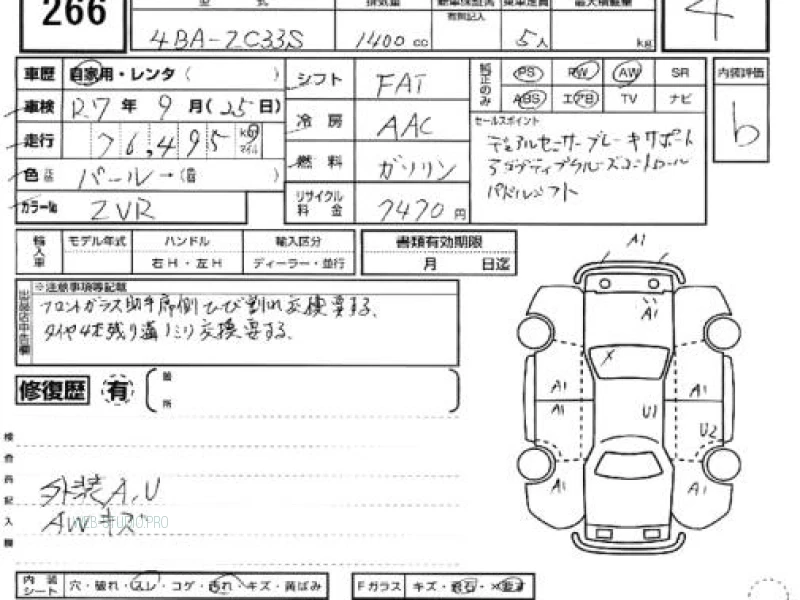 266
型 式
排気量
乗車定員
最大積載量
有無記入
4BA-ZC33S
1400 cc
5人
kg
4
車歴 自家用・レンタ ( )
シフト FAT
純正のみ
PS PW AW SR
ABS エアB TV ナビ
内装評価
b
車検 R7年 9月(25日)
冷房 AAC
セールスポイント
デュアルセンサーブレーキサポート
アダプティブクルーズコントロール
パドルシフト
走行 76,495 km マイル
燃料 ガソリン
色 パール→( )
リサイクル料金 7470円
カラー№ ZVR
輸入車
モデル年式 ハンドル 輸入区分
右H・左H ディーラー・並行
書類有効期限
月 日迄
出品店申告欄
※注意事項等記載
フロントガラス助手席側ひび割れ交換要する、
タイヤ4本残り溝1ミリ交換要する、
修復歴 有
箇所
検査員記入欄
外装A,U
AWキズ
WEB-STUDIO.PRO
A1
A1
X
A1
A1
U1
A1
U2
A1
A1
内装シート 穴・破れ・スレ・コゲ・汚れ・キズ・黄ばみ
Fガラス キズ・飛石・×要す